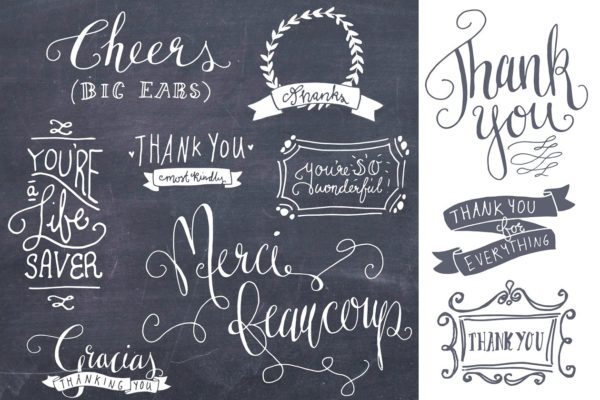 Cheers
(BIG EARS)
Thanks
YOU'RE
a
Life
SAVER
THANK YOU
most kindly
you're SO
wonderful!
Merci
Beaucoup
Gracias
THANKING YOU
Thank
you
THANK YOU
for
EVERYTHING
THANK YOU